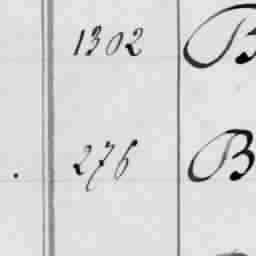 1302 B
. 276 B